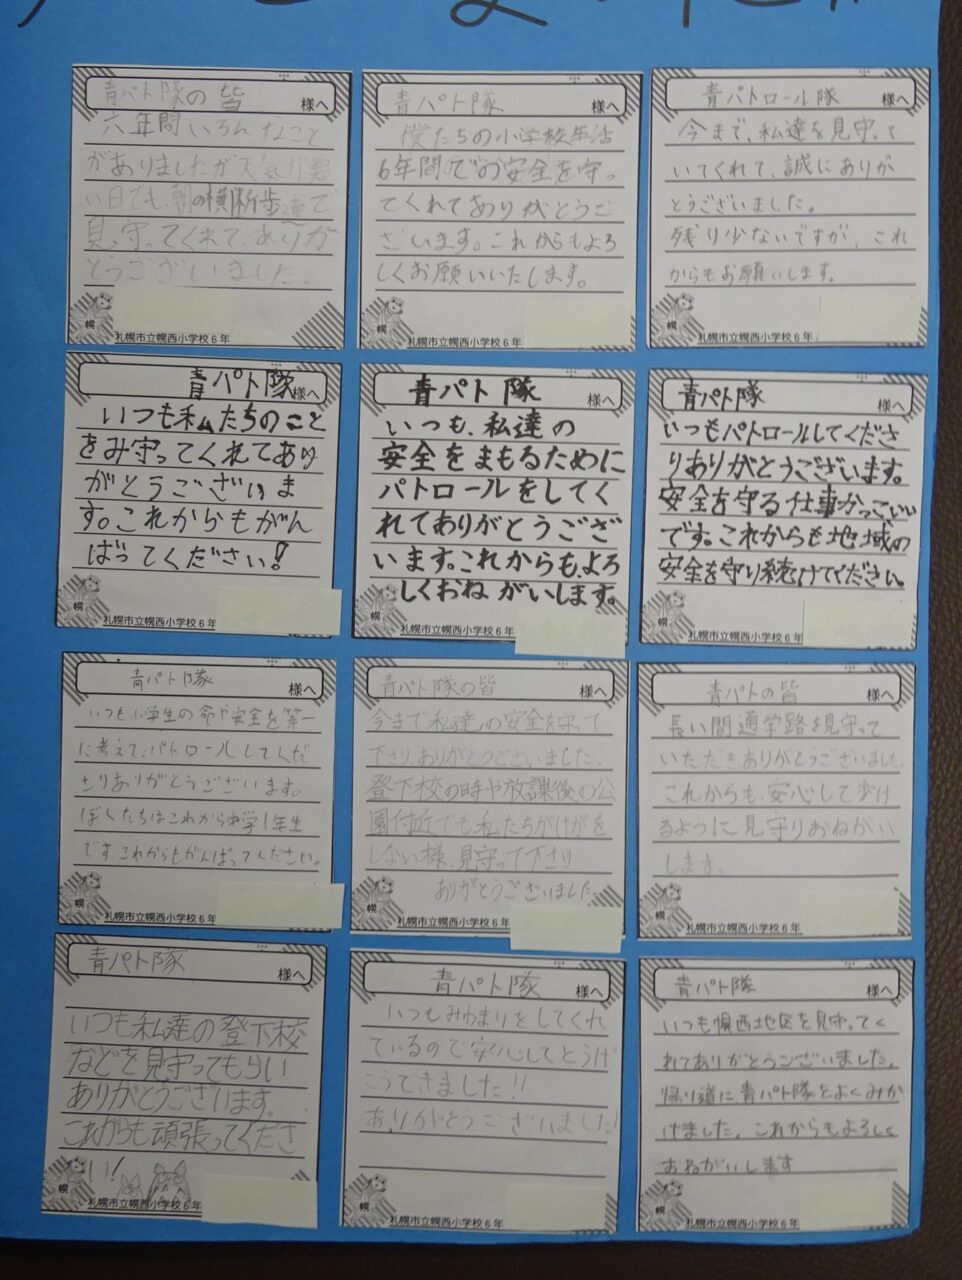 青パト隊の皆 様へ
六年間いろんなこと
がありましたが天気が悪
い日でも、朝の横断歩道で
見守ってくれて、ありが
とうございました。
札幌市立幌西小学校6年
青パト隊 様へ
僕たちの小学校生活
6年間での安全を守っ
てくれてありがとうご
ざいます。これからもよろ
しくお願いいたします。
札幌市立幌西小学校6年
青パトロール隊 様へ
今まで、私達を見守って
いてくれて、誠にありが
とうございました。
残り少ないですが、これ
からもお願いします。
札幌市立幌西小学校6年
青パト隊 様へ
いつも私たちのこと
をみ守ってくれてあり
がとうございま
す。これからもがん
ばってください!
札幌市立幌西小学校6年
青パト隊 様へ
いつも、私達の
安全をまもるために
パトロールをしてく
れてありがとうござ
います。これからも、よろ
しくおねがいします。
札幌市立幌西小学校6年
青パト隊 様へ
いつもパトロールしてくださ
りありがとうございます。
安全を守る仕事かっこいい
です。これからも地域の
安全を守り続けてください。
札幌市立幌西小学校6年
青パト隊 様へ
いつも小学生の命や安全を第一
に考えて、パトロールしてくだ
さりありがとうございます。
ぼくたちはこれから中学1年生
です。これからもがんばってください。
札幌市立幌西小学校6年
青パト隊の皆 様へ
今まで私達の安全を守って
下さり、ありがとうございました。
登下校の時や放課後の公
園付近でも、私たちがけがを
しない様、見守って下さり
ありがとうございました。
札幌市立幌西小学校6年
青パトの皆 様へ
長い間通学路を見守って
いただきありがとうございました。
これからも、安心して歩け
るように見守りおねがい
します。
札幌市立幌西小学校6年
青パト隊 様へ
いつも私達の登下校
などを見守ってもらい
ありがとうございます。
これからも頑張ってくださ
い!
札幌市立幌西小学校6年
青パト隊 様へ
いつもみまもりをしてくれ
ているので安心してとうげ
こうできました!!
ありがとうございました!
札幌市立幌西小学校6年
青パト隊 様へ
いつも幌西地区を見守ってく
れてありがとうございました。
帰り道に青パト隊をよくみか
けました。これからもよろしく
おねがいします
札幌市立幌西小学校6年